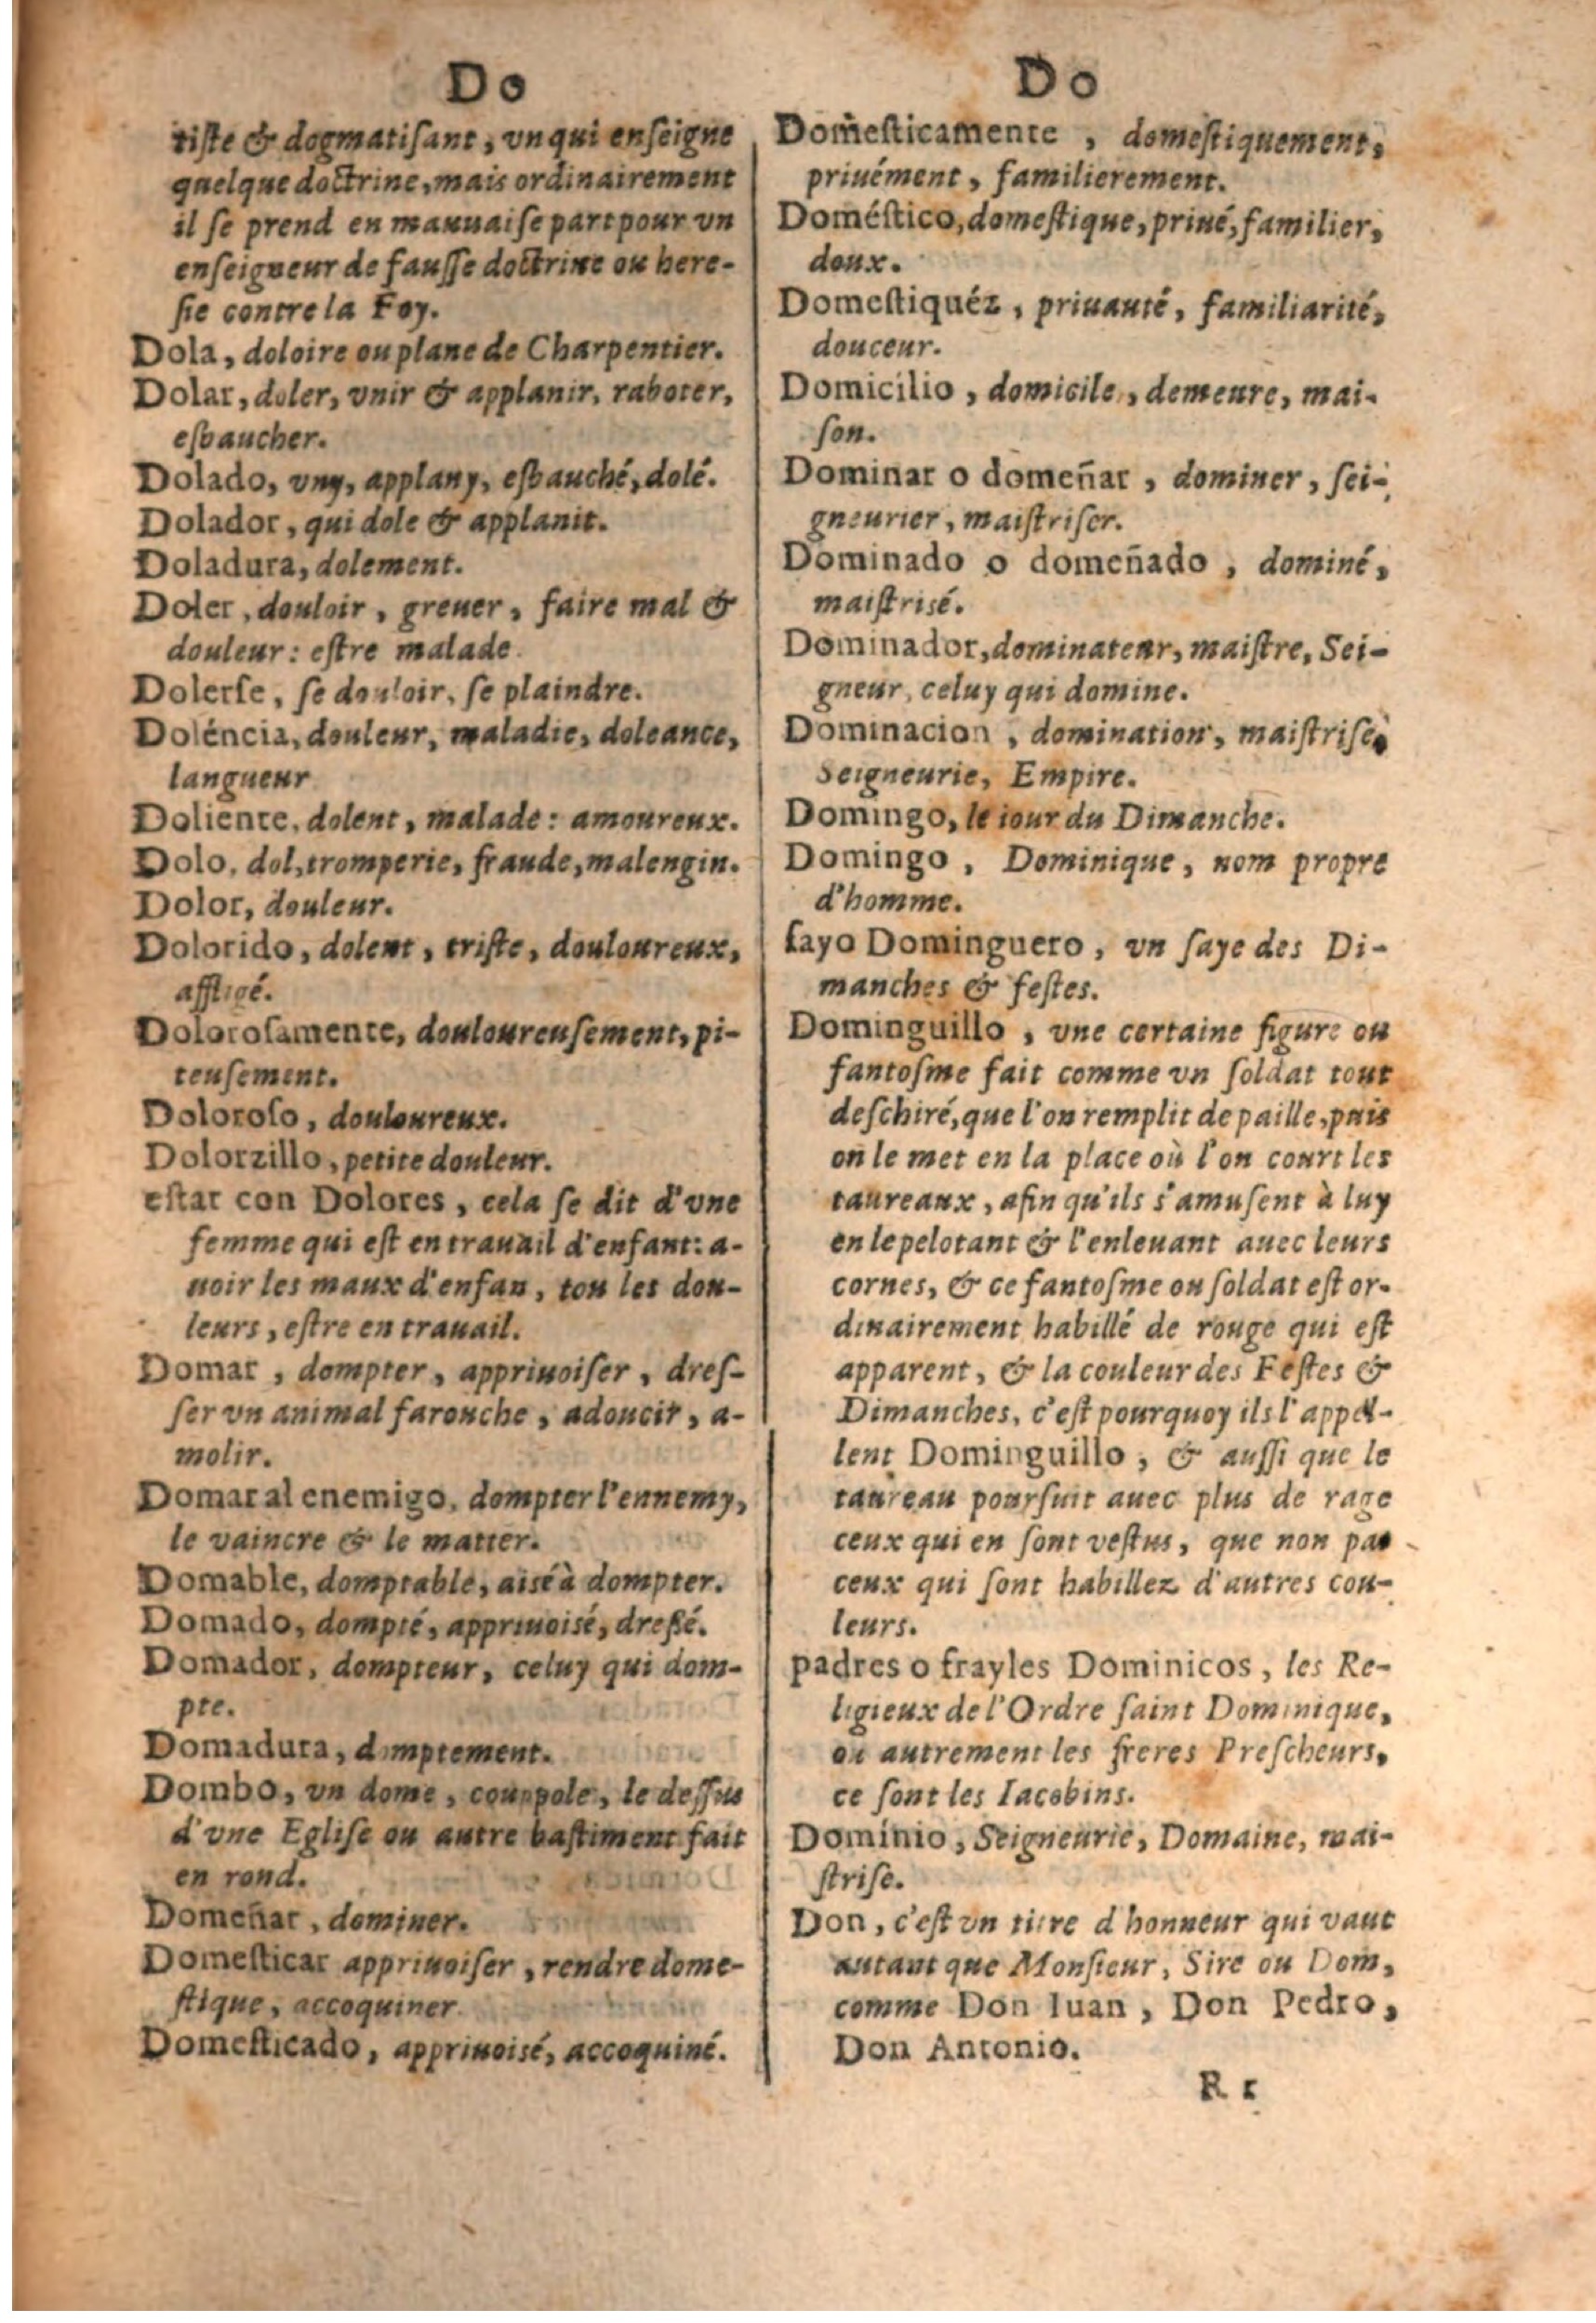 Do
tiſte & dogmatiſant, vn qui enſeigne
quelque doctrine, mais ordinairement
il ſe prend en mauuaiſe part pour vn
enſeigneur de fauſſe doctrine ou here-
ſie contre la Foy.
Dola, doloire ou plane de Charpentier.
Dolar, doler, vnir & applanir, raboter,
eſbaucher.
Dolado, vny, applany, eſbauché, dolé.
Dolador, qui dole & applanit.
Doladura, dolement.
Doler, douloir, greuer, faire mal &
douleur: eſtre malade.
Dolerſe, ſe douloir, ſe plaindre.
Doléncia, douleur, maladie, doleance,
langueur
Doliente, dolent, malade: amoureux.
Dolo, dol, tromperie, fraude, malengin.
Dolor, douleur.
Dolorido, dolent, triſte, douloureux,
affligé.
Doloroſamente, douloureuſement, pi-
teuſement.
Doloroſo, douloureux.
Dolorzillo, petite douleur.
eſtar con Dolores, cela ſe dit d'vne
femme qui eſt en trauail d'enfant: a-
uoir les maux d'enfan, tou les dou-
leurs, eſtre en trauail.
Domar, dompter, appriuoiſer, dreſ-
ſer vn animal farouche, adoucir, a-
molir.
Domar al enemigo, dompter l'ennemy,
le vaincre & le matter.
Domable, domptable, aisé à dompter.
Domado, dompté, appriuoisé, dreßé.
Domador, dompteur, celuy qui dom-
pte.
Domadura, domptement.
Dombo, vn dome, couppole, le deſſus
d'vne Egliſe ou autre baſtiment fait
en rond.
Domeñar, dominer.
Domeſticar appriuoiſer, rendre dome-
ſtique, accoquiner.
Domeſticado, appriuoisé, accoquiné.
Do
Domeſticamente, domeſtiquement,
priuément, familierement.
Doméſtico, domeſtique, priué, familier,
doux.
Domeſtiquéz, priuauté, familiarité,
douceur.
Domicílio, domicile, demeure, mai-
ſon.
Dominar o domeñar, dominer, ſei-
gneurier, maiſtriſer.
Dominado o domeñado, dominé,
maiſtrisé.
Dominador, dominateur, maiſtre, Sei-
gneur, celuy qui domine.
Dominacion, domination, maiſtriſe,
Seigneurie, Empire.
Domingo, le iour du Dimanche.
Domingo, Dominique, nom propre
d'homme.
ſayo Dominguero, vn ſaye des Di-
manches & feſtes.
Dominguillo, vne certaine figure ou
fantoſme fait comme vn ſoldat tout
deſchiré, que l'on remplit de paille, puis
on le met en la place où l'on court les
taureaux, afin qu'ils s'amuſent à luy
en le pelotant & l'enleuant auec leurs
cornes, & ce fantoſme ou ſoldat eſt or-
dinairement habillé de rouge qui eſt
apparent, & la couleur des Feſtes &
Dimanches, c'eſt pourquoy ils l'appel-
lent Dominguillo, & auſſi que le
taureau pourſuit auec plus de rage
ceux qui en ſont veſtus, que non pas
ceux qui ſont habillez d'autres cou-
leurs.
padres o frayles Dominicos, les Re-
ligieux de l'Ordre ſaint Dominique,
ou autrement les freres Preſcheurs,
ce ſont les Iacobins.
Domínio, Seigneurie, Domaine, mai-
ſtriſe.
Don, c'eſt vn titre d'honneur qui vaut
autant que Monſieur, Sire ou Dom,
comme Don Iuan, Don Pedro,
Don Antonio.
R r